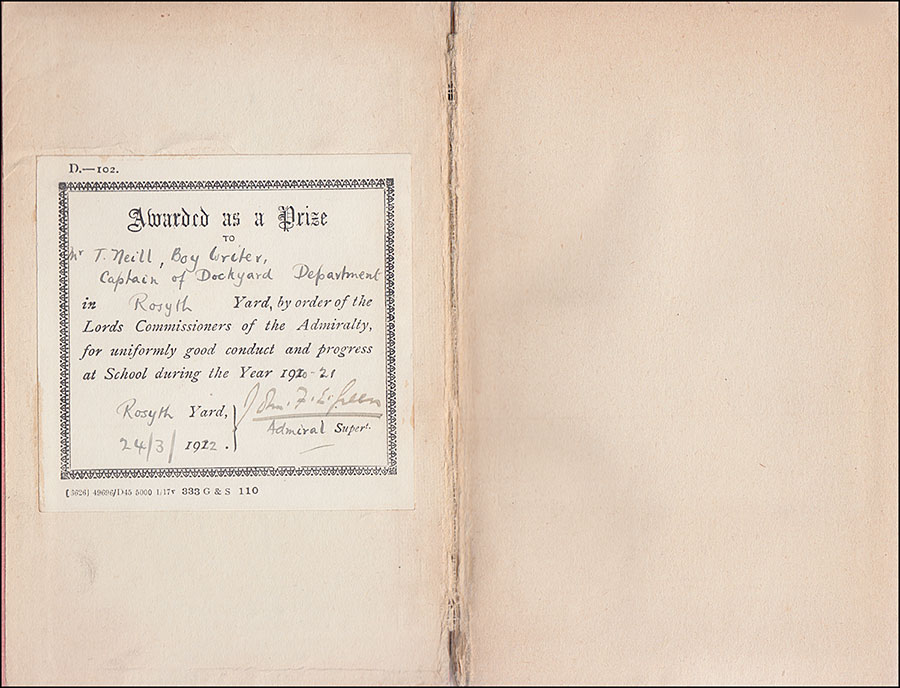 D.—102.
Awarded as a Prize
TO
Mr T. Neill, Boy Writer,
Captain of Dockyard Department
in Rosyth Yard, by order of the
Lords Commissioners of the Admiralty,
for uniformly good conduct and progress
at School during the Year 1920-21
Rosyth Yard, John. F. E. Green
Admiral Supert.
24/3/ 1922.
[3626] 49696/D45 5000 1/17v 333 G & S 110